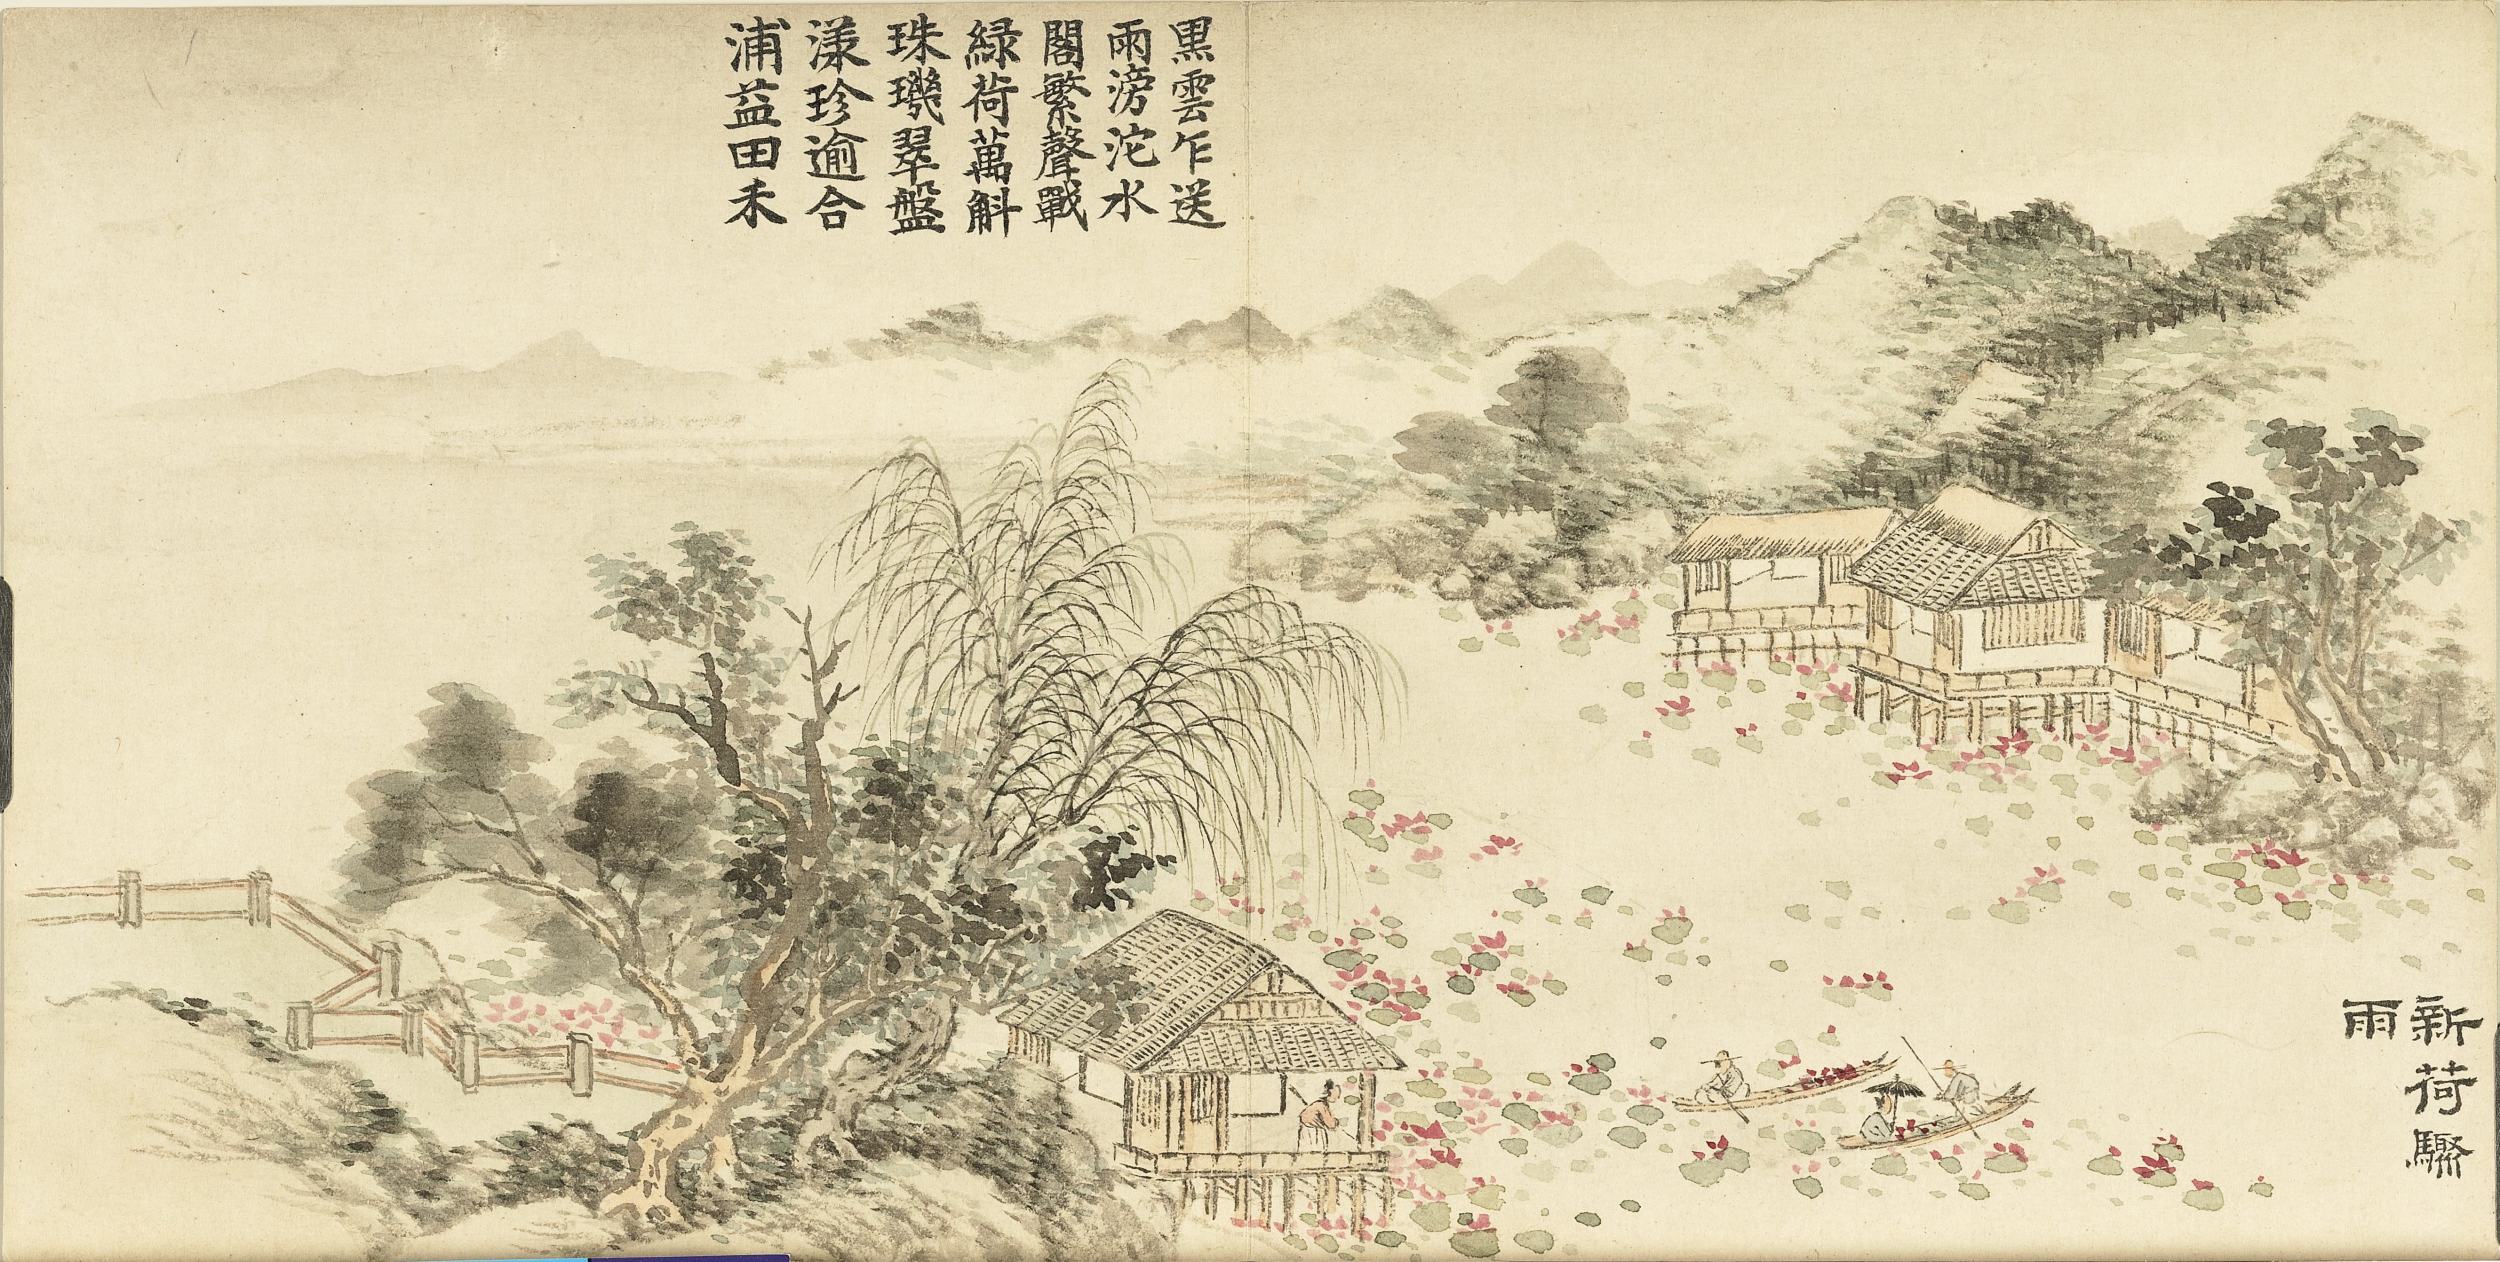 黒雲乍送
雨滂沱水
閣繁聲戰
緑荷萬斛
珠璣翠盤
漾珍逾合
浦益田禾
新荷驟
雨